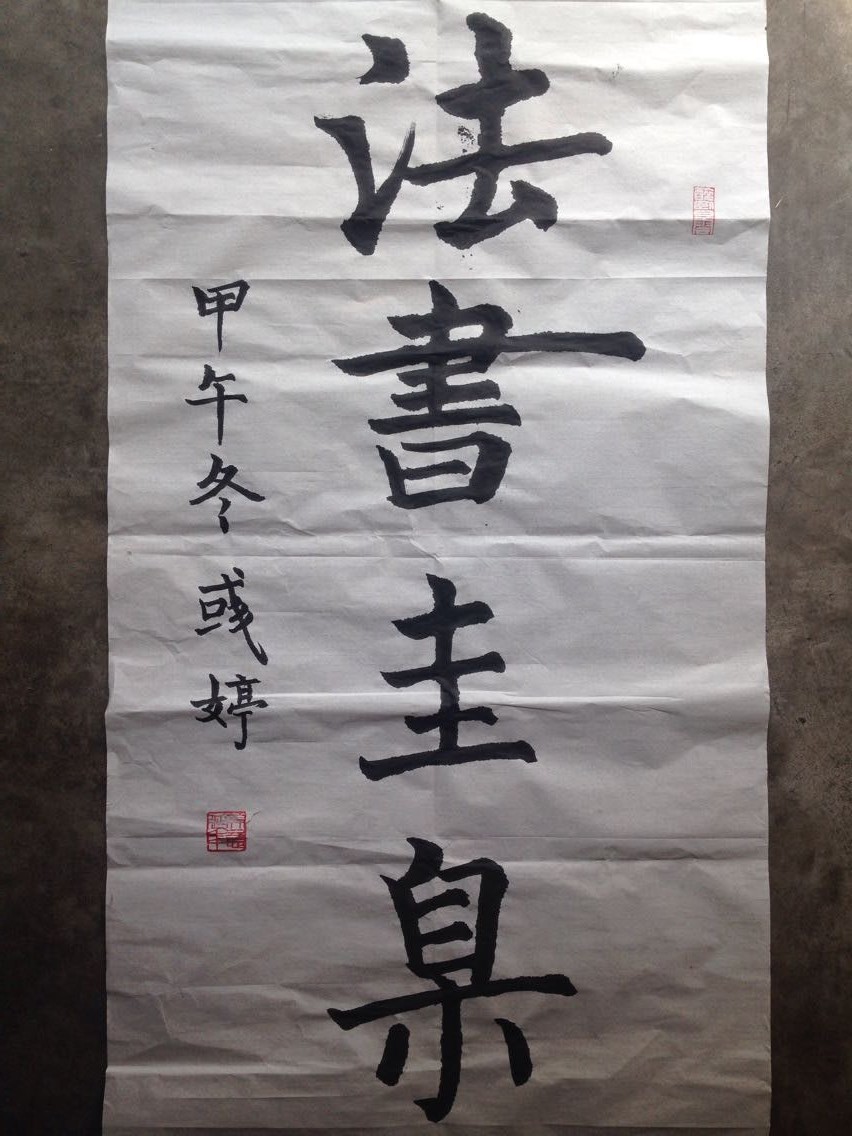 法書圭臬
甲午冬彧婷